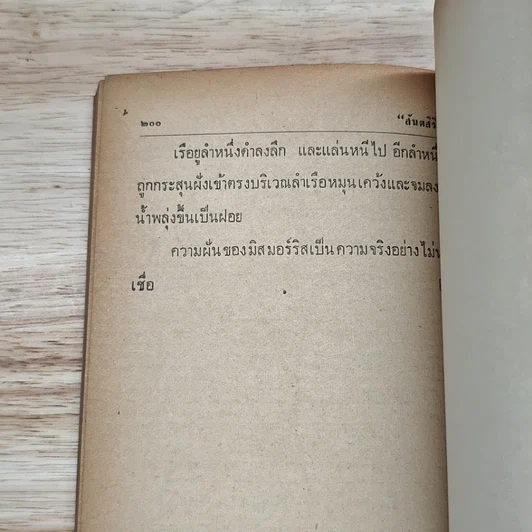 ๒๐๐ “สันตสิริ
เรือยูลำหนึ่งดำลงลึก และแล่นหนีไป อีกลำหนึ
ถูกกระสุนฝังเข้าตรงบริเวณลำเรือหมุนเคว้งและจมลง
น้ำพลุ่งขึ้นเป็นฝอย
ความฝันของมิสมอร์ริสเป็นความจริงอย่างไม่น
เชื่อ